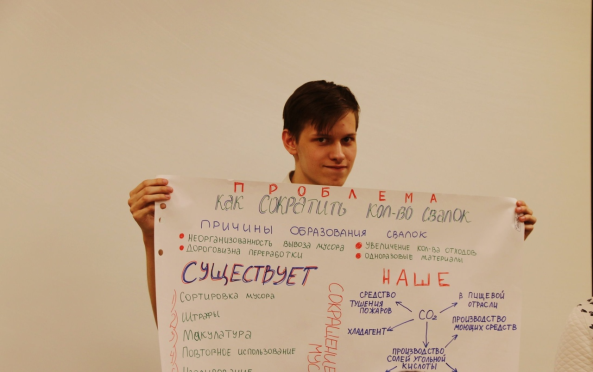 ПРОБЛЕМА
КАК СОКРАТИТЬ КОЛ-ВО СВАЛОК
ПРИЧИНЫ ОБРАЗОВАНИЯ СВАЛОК
НЕОРГАНИЗОВАННОСТЬ ВЫВОЗА МУСОРА
ДОРОГОВИЗНА ПЕРЕРАБОТКИ
УВЕЛИЧЕНИЕ КОЛ-ВА ОТХОДОВ
ОДНОРАЗОВЫЕ МАТЕРИАЛЫ
СУЩЕСТВУЕТ
СОРТИРОВКА МУСОРА
ШТРАФЫ
МАКУЛАТУРА
ПОВТОРНОЕ ИСПОЛЬЗОВАНИЕ
СОКРАЩЕНИЕ
НАШЕ
СРЕДСТВО
ТУШЕНИЯ
ПОЖАРОВ
ХЛАДАГЕНТ
CO₂
В ПИЩЕВОЙ
ОТРАСЛИ
ПРОИЗВОДСТВО
МОЮЩИХ СРЕДСТВ
ПРОИЗВОДСТВО
СОЛЕЙ УГОЛЬНОЙ
КИСЛОТЫ